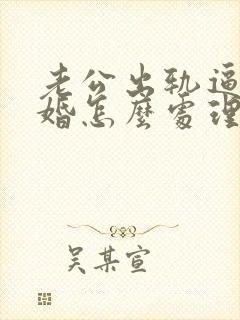 老公出轨逼
婚怎麽處理
吴某宣